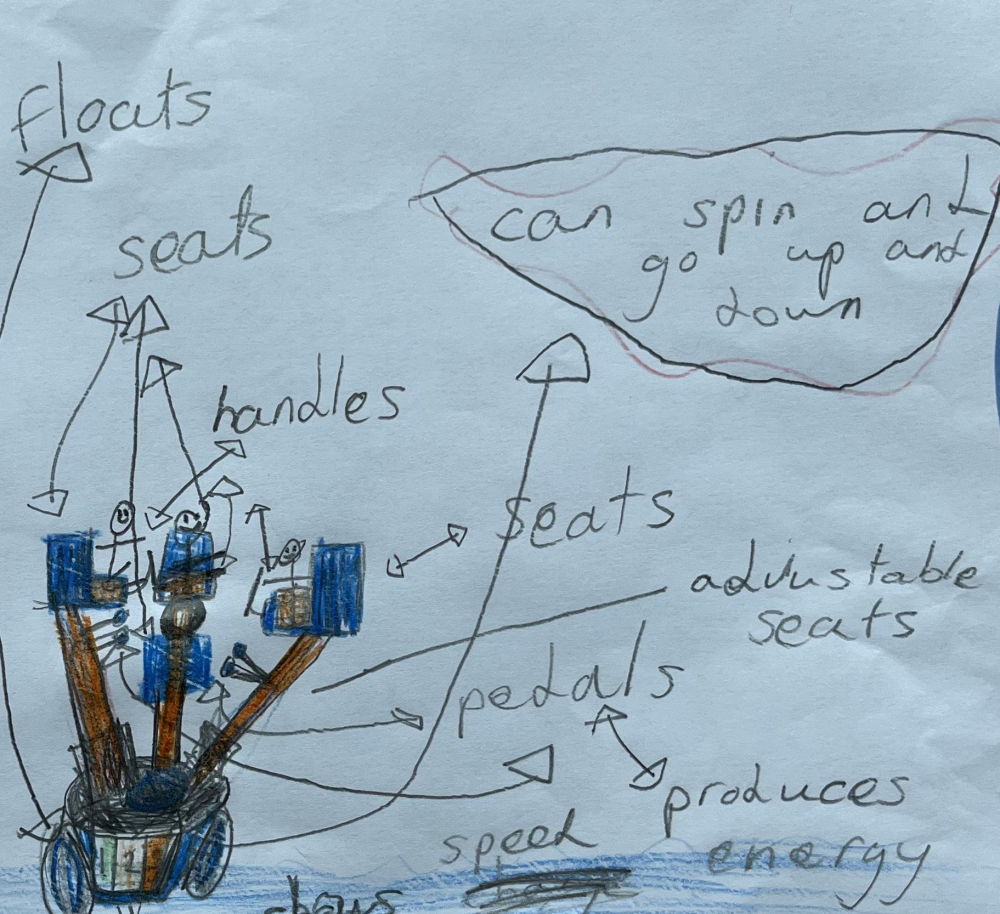 floats
seats
can spin and
go up and
down
handles
seats
adjustable
seats
pedals
produces
energy
speed
shows